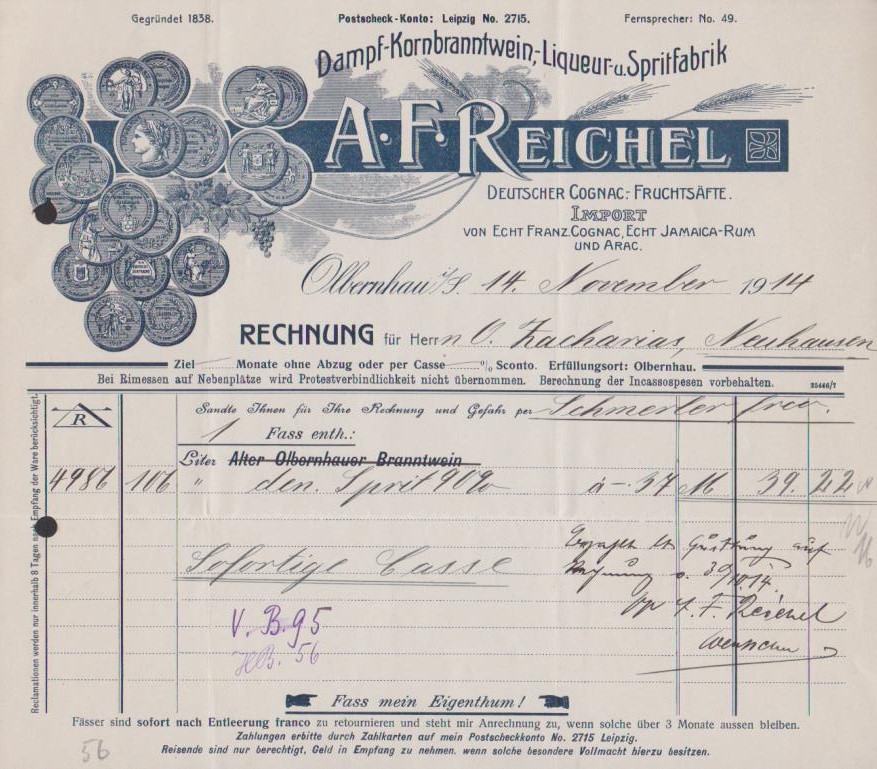 Gegründet 1838. Postscheck-Konto: Leipzig No. 2715. Fernsprecher: No. 49.
Dampf-Kornbranntwein-, Liqueur- u. Spritfabrik
A. F. REICHEL
DEUTSCHER COGNAC.- FRUCHTSÄFTE.
IMPORT
VON ECHT FRANZ. COGNAC, ECHT JAMAICA-RUM
UND ARAC.
Olbernhau i/S. 14. November 1914
RECHNUNG für Herrn O. Zacharias, Neuhausen
Ziel Monate ohne Abzug oder per Casse % Sconto. Erfüllungsort: Olbernhau.
Bei Rimessen auf Nebenplätze wird Protestverbindlichkeit nicht übernommen. Berechnung der Incassospesen vorbehalten. 25446/7
Reclamationen werden nur innerhalb 8 Tagen nach Empfang der Ware berücksichtigt.
R
Sandte Ihnen für Ihre Rechnung und Gefahr per Schmerler frco.
1 Fass enth.:
Liter Alter Olbernhauer Branntwein
4986 106 " den. Sprit 90% à - 37 M 39. 22
Sofortige Casse
auf
A. F. Reichel
V. B. 95
HB. 56
Fass mein Eigenthum!
Fässer sind sofort nach Entleerung franco zu retournieren und steht mir Anrechnung zu, wenn solche über 3 Monate aussen bleiben.
Zahlungen erbitte durch Zahlkarten auf mein Postscheckkonto No. 2715 Leipzig.
Reisende sind nur berechtigt, Geld in Empfang zu nehmen, wenn solche besondere Vollmacht hierzu besitzen.
56